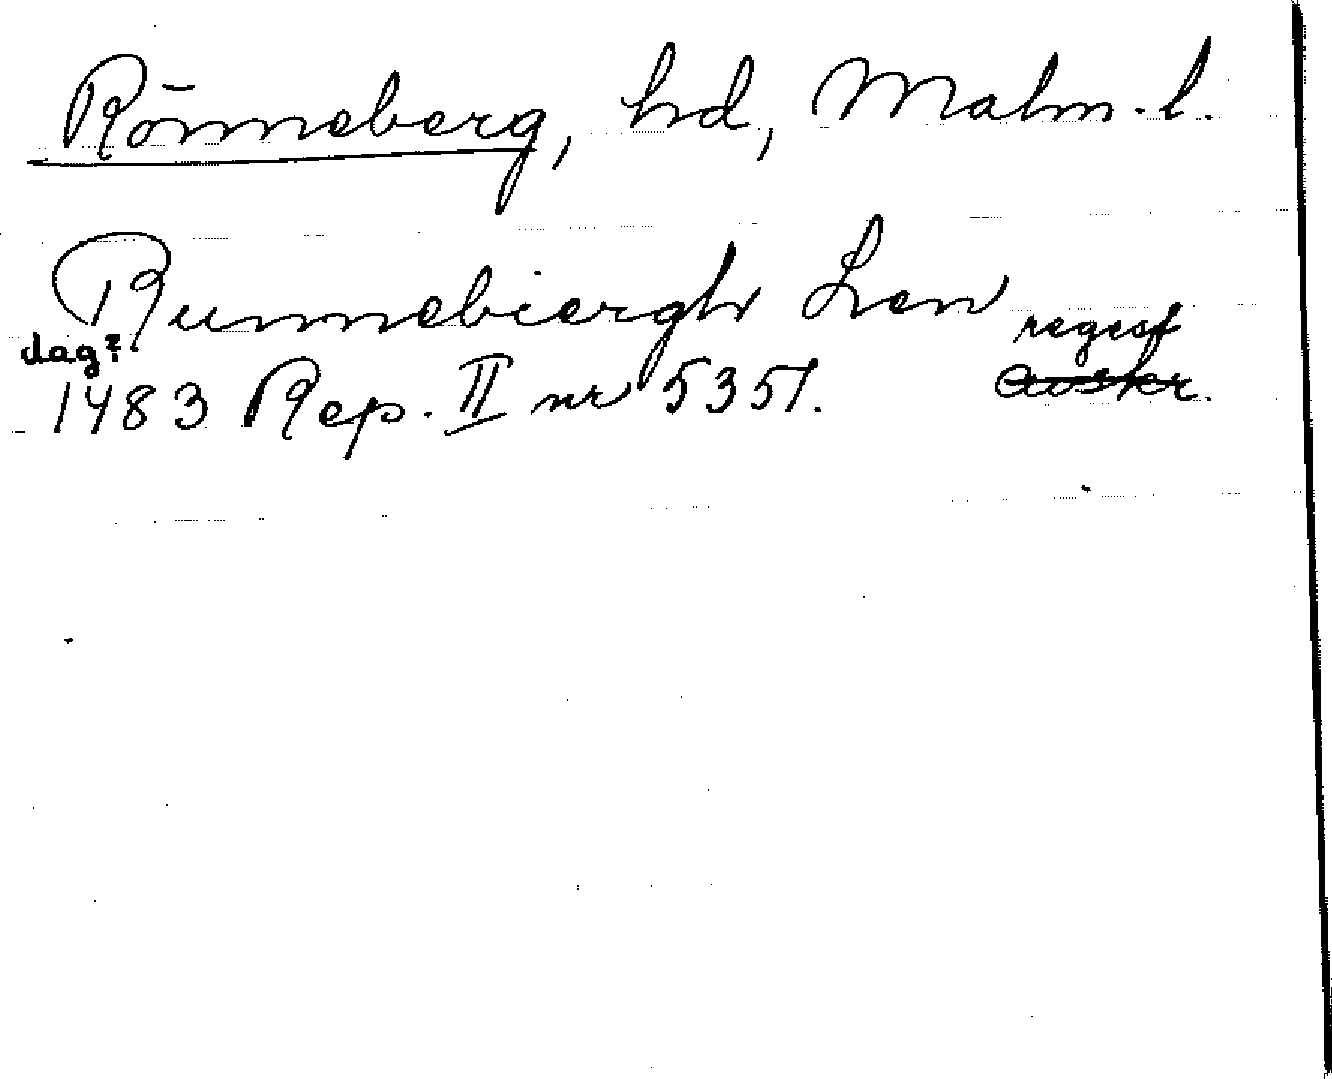 Rönneberg, hd, Malm. l.
Runnebiergh Len regest
dag?
1483 Rep. II nr 5351. avskr.